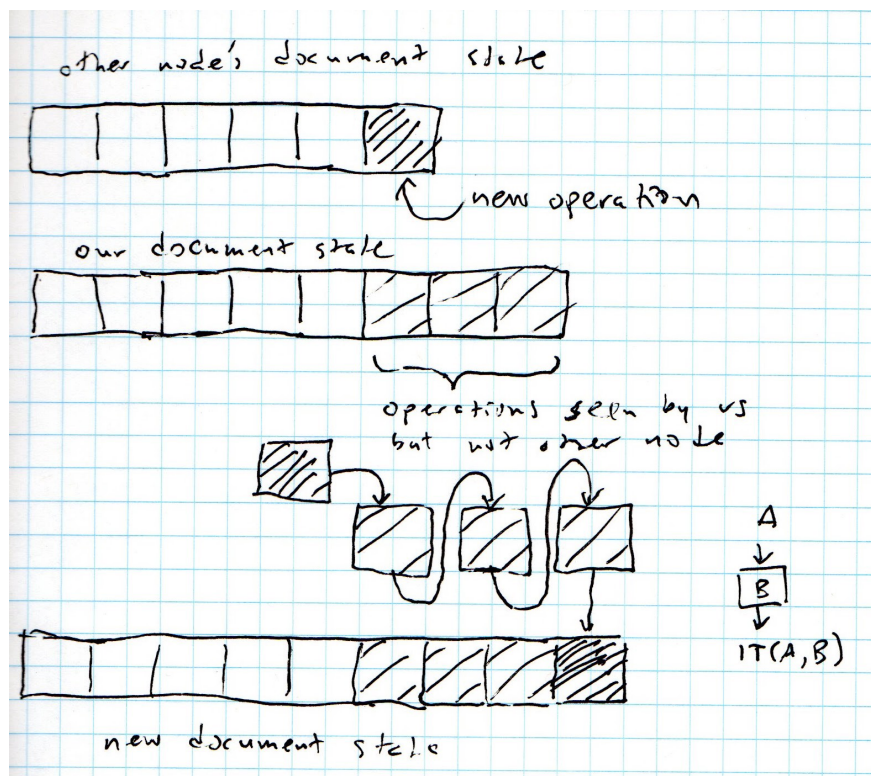 other node's document state
new operation
our document state
operations seen by us
but not other node
A
B
IT(A,B)
new document state